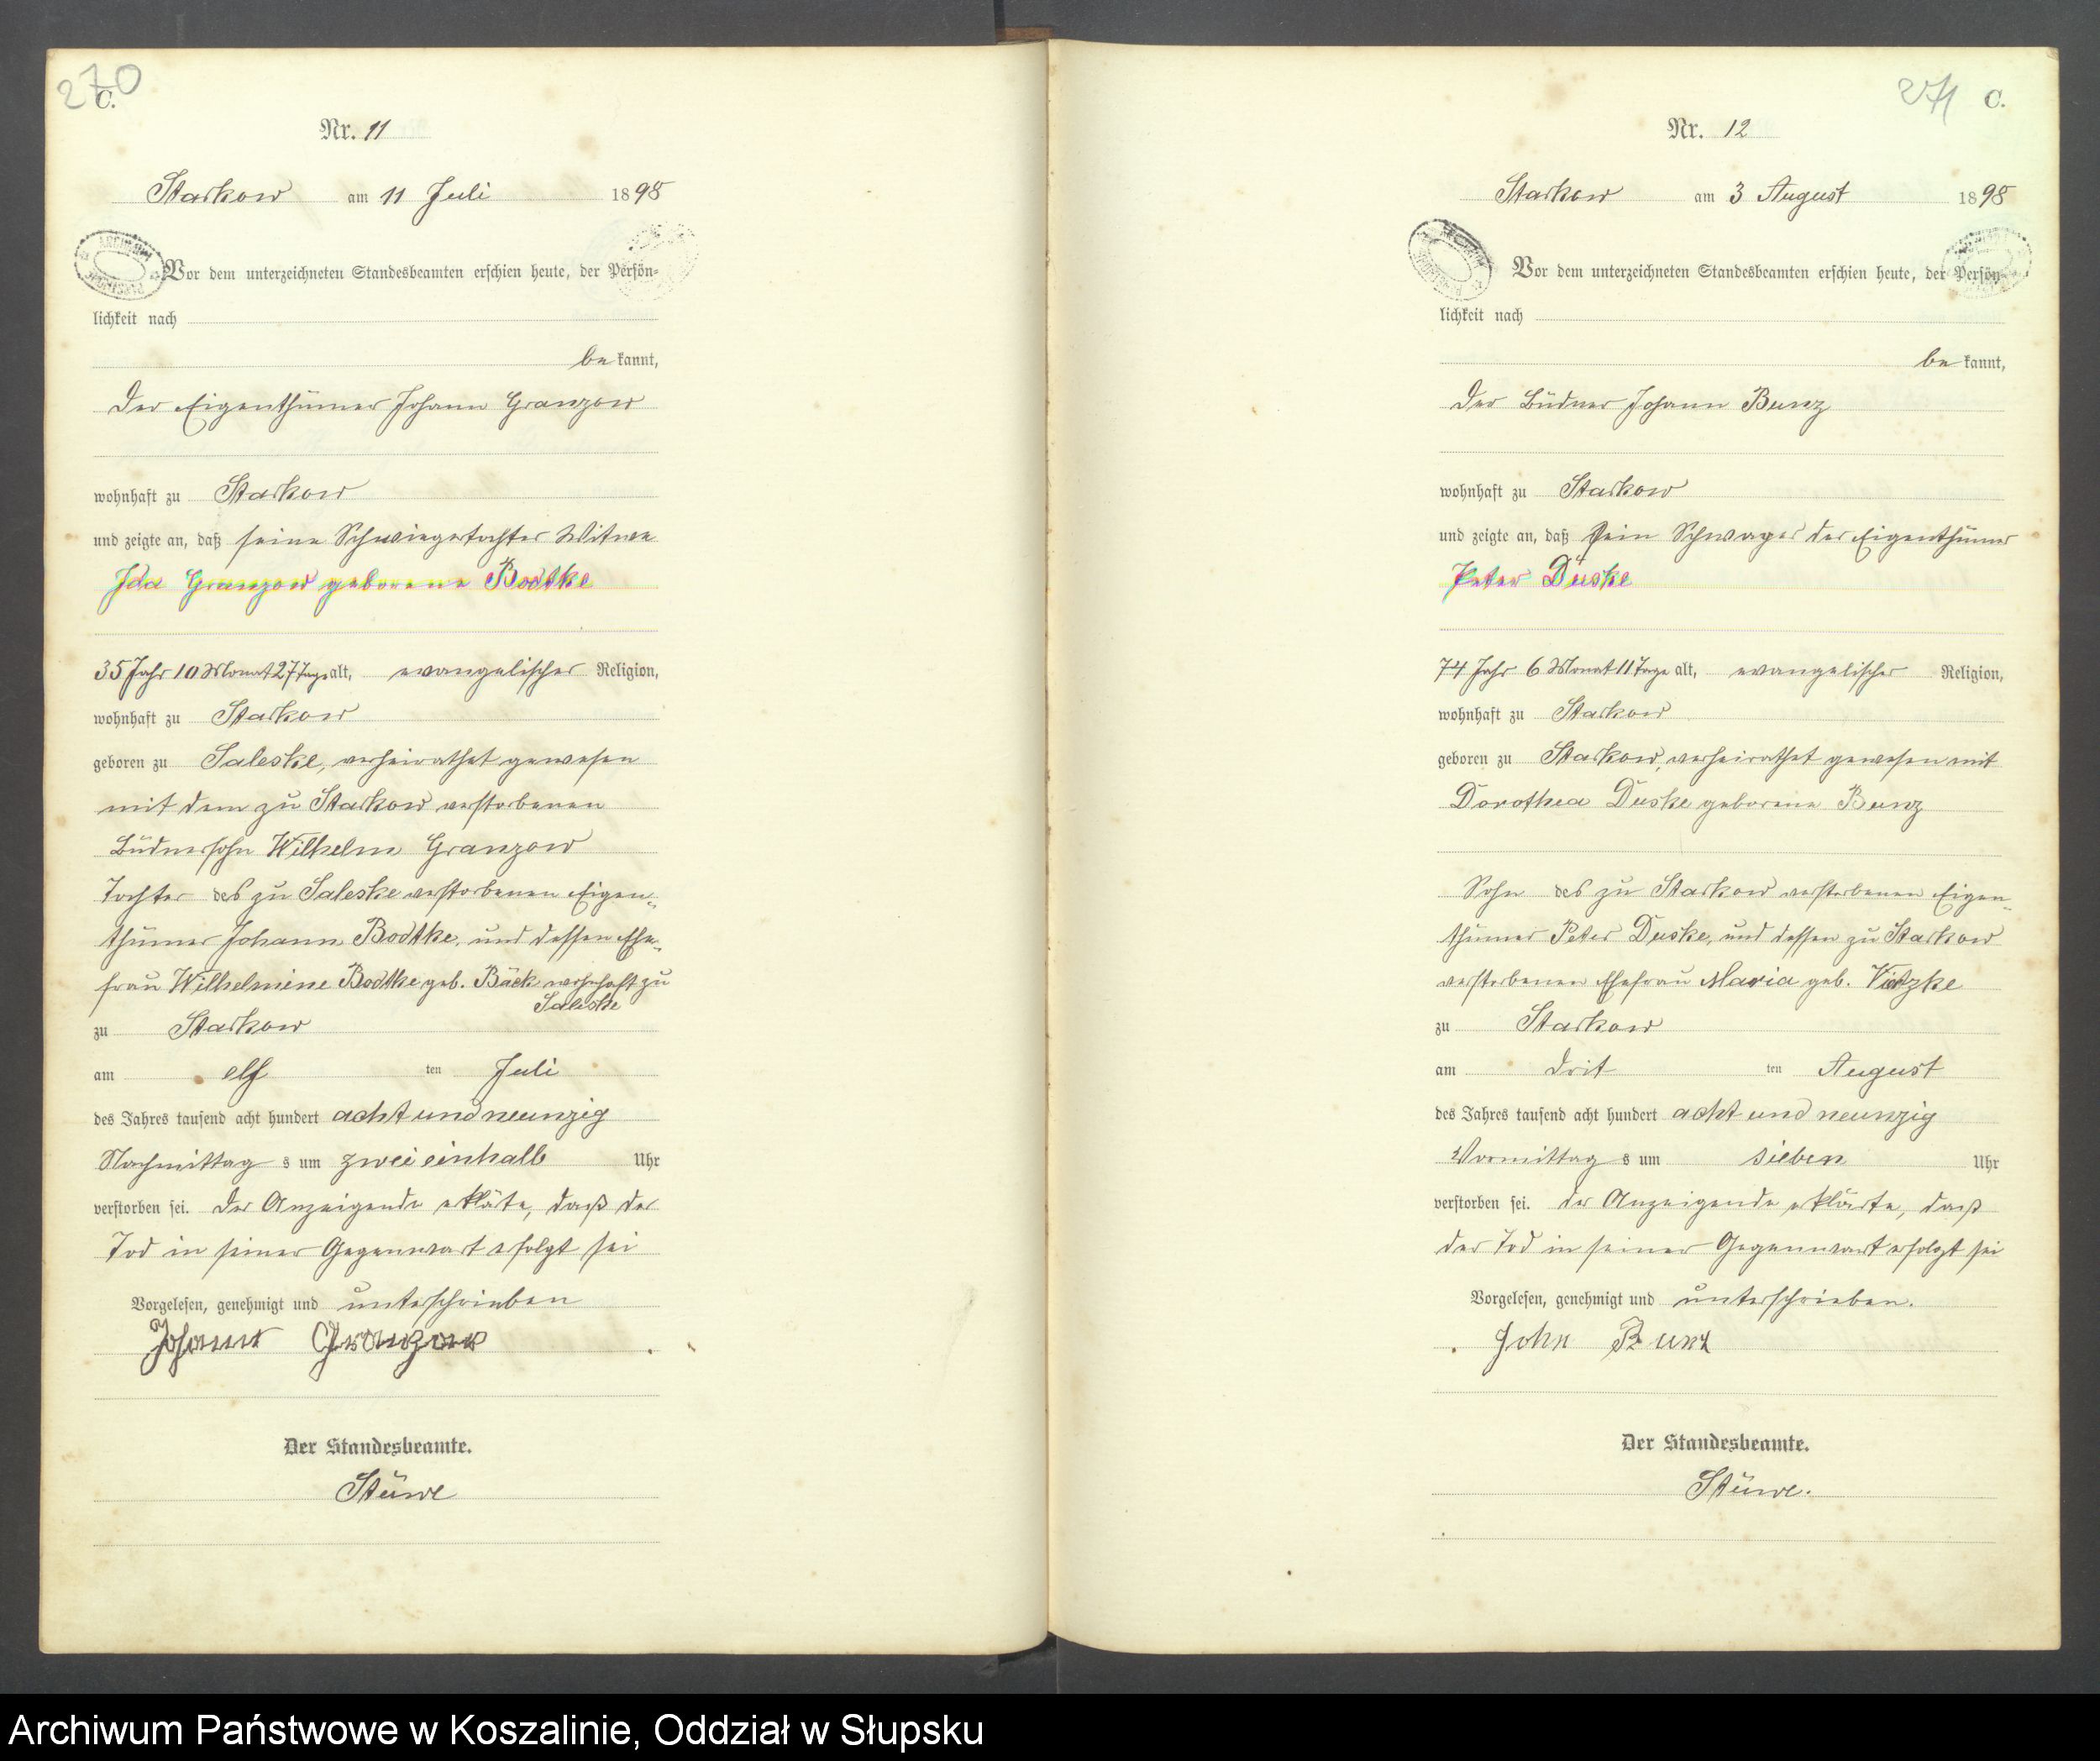 270
C.
Nr. 11
Starkow am 11 Juli 1898
Vor dem unterzeichneten Standesbeamten erschien heute, der Persön-
lichkeit nach
be kannt,
der Eigenthümer Johann Granzow
wohnhaft zu Starkow
und zeigte an, daß seine Schwiegertochter Witwe
Ida Granzow geborene Bodtke
35 Jahr 10 Monat 27 Tage alt, evangelischer Religion,
wohnhaft zu Starkow
geboren zu Saleske, verheirathet gewesen
mit dem zu Starkow verstorbenen
Büdnersohn Wilhelm Granzow
Tochter des zu Saleske verstorbenen Eigen-
thümer Johann Bodtke, und dessen Ehe-
frau Wilhelmine Bodtke geb. Bäck wohnhaft zu
Saleske
zu Starkow
am elf ten Juli
des Jahres tausend acht hundert acht und neunzig
Nachmittag s um zwei einhalb Uhr
verstorben sei. Der Anzeigende erklärte, daß der
Tod in seiner Gegenwart erfolgt sei
Vorgelesen, genehmigt und unterschrieben
Johann Granzow
Der Standesbeamte.
Stüwe
271 C.
Nr. 12
Starkow am 3 August 1898
Vor dem unterzeichneten Standesbeamten erschien heute, der Persön-
lichkeit nach
be kannt,
der Büdner Johann Bunz
wohnhaft zu Starkow
und zeigte an, daß sein Schwager der Eigenthümer
Peter Duske
74 Jahr 6 Monat 11 Tage alt, evangelischer Religion,
wohnhaft zu Starkow
geboren zu Starkow, verheirathet gewesen mit
Dorothea Duske geborene Bunz
Sohn des zu Starkow verstorbenen Eigen-
thümer Peter Duske, und dessen zu Starkow
verstorbenen Ehefrau Maria geb. Vietzke
zu Starkow
am drit ten August
des Jahres tausend acht hundert acht und neunzig
Vormittag s um sieben Uhr
verstorben sei. der Anzeigende erklärte, daß
der Tod in seiner Gegenwart erfolgt sei
Vorgelesen, genehmigt und unterschrieben.
John Bunz
Der Standesbeamte.
Stüwe.
Archiwum Państwowe w Koszalinie, Oddział w Słupsku